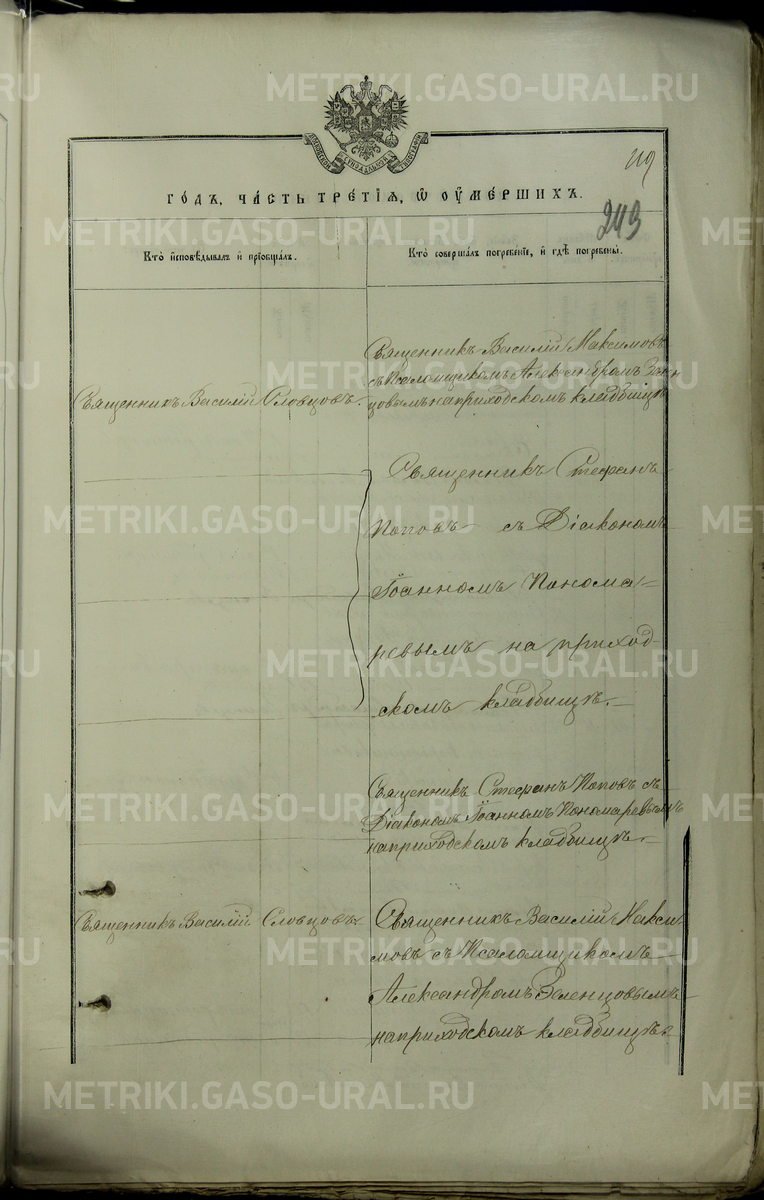 METRIKI.GASO-URAL.RU
219
ГО́ДЪ, ЧА́СТЬ ТРЕ́ТІЯ, Ѡ ОУ҆МЕ́РШИХЪ.
243
Кто̀ и҆сповѣ́дывалъ и҆ прїобща́лъ.
Кто̀ соверша́лъ погребе́нїе, и҆ гдѣ̀ погребены̀.
Священникъ Василій Словцовъ.
Священникъ Василій Максимовъ
съ Псаломщикомъ Александромъ Зелен
цовымъ на приходскомъ кладбищѣ
Священникъ Стефанъ
Поповъ съ Діакономъ
Іоанномъ Понома-
ревымъ на приход-
скомъ кладбищѣ.
Священникъ Стефанъ Поповъ съ
Діакономъ Іоанномъ Пономаревымъ
на приходскомъ кладбищѣ.
Священникъ Василій Словцовъ
Священникъ Василій Макси-
мовъ съ Псаломщикомъ
Александромъ Зеленцовымъ
на приходскомъ кладбищѣ.